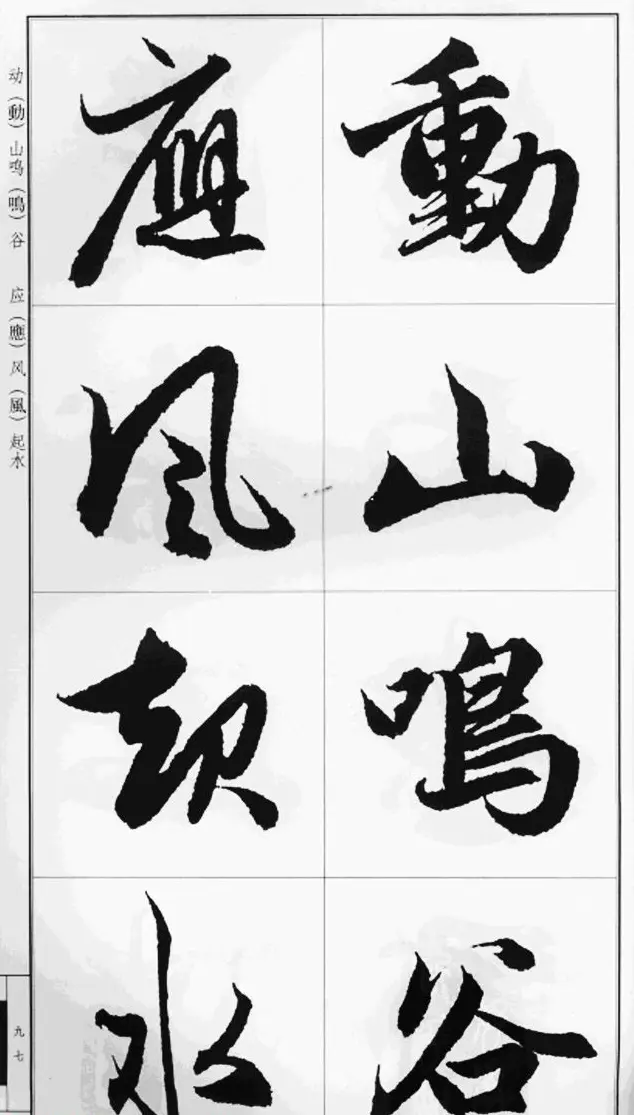 動山鳴谷
應風起水
动（動）山鸣（鳴）谷 应（應）风（風）起水
九七